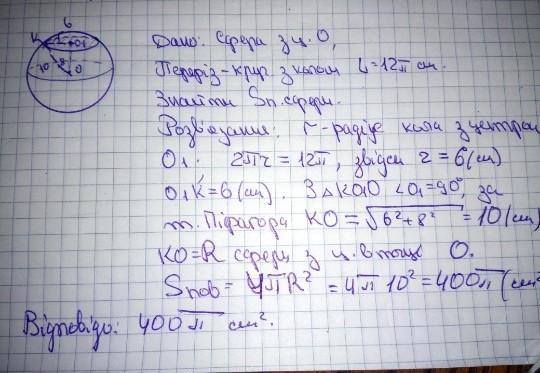 6
K 6 O₁
10 8 O
Дано: Сфера з ц. O,
Переріз-круг з колом L=12π см.
Знайти Sп.сфери.
Розв'язання. r-радіус кола з центром
O₁. 2πr=12π, звідси r=6(см)
O₁K=6(см). З △KO₁O ∠O₁=90°, за
т. Піфагора KO=√6²+8²=10(см)
KO=R сфери з ц. в точці O.
Sпов=4πR²=4π10²=400π(см²
Відповідь: 400π см².